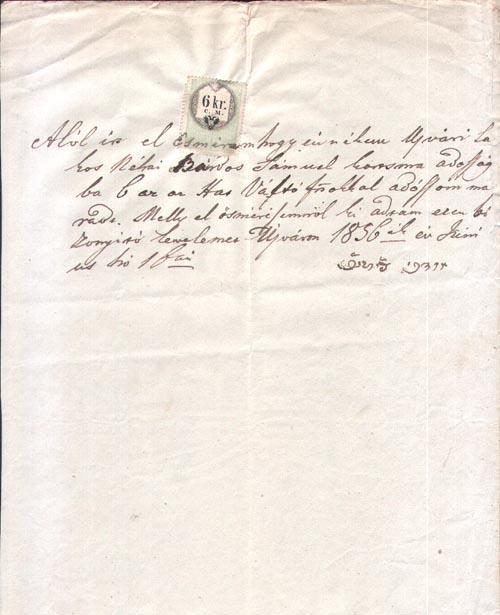 6 kr.
C. M.
Alól ir el esmérem hogy én nékem Ujvári la
kos Néhai Bárdos Sámuel korcsma adósság
ba 6 az az Hat Váltó fkal adóssom ma
radt. Melly el ösmérésemröl ki adtam ezen bi
zonyitó levelemet Ujváron 1856ik év Juni
us hó 1sai